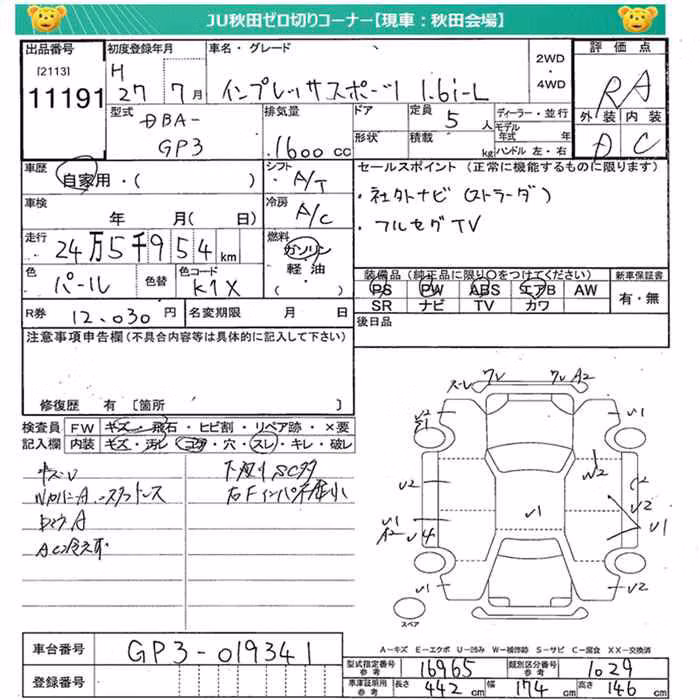 JU秋田ゼロ切りコーナー【現車：秋田会場】
出品番号 初度登録年月 車名・グレード 2WD・4WD 評価点
[2113] 11191 H 27年 7月 インプレッサスポーツ 1.6i-L RA
外装 内装
D C
型式 DBA-GP3 排気量 1600cc ドア 形状 定員 5人 積載 kg ディーラー・並行 モデル年式 年 ハンドル 左・右
車歴 自家用・( ) シフト A/T セールスポイント (正常に機能するものに限ります)
・社外ナビ(ストラーダ)
車検 年 月(日) 冷房 A/C
・フルセグTV
走行 24万5千954km 燃料 ガソリン 軽油 ( )
色 パール 色替 色コード K1X
装備品 (純正品に限り〇をつけてください) 新車保証書
PS PW ABS エアB AW 有・無
SR ナビ TV カワ
R券 12,030円 名変期限 月 日 後日品
注意事項申告欄(不具合内容等は具体的に記入して下さい)
修復歴 有 [箇所 ]
検査員 FW キズ・飛石・ヒビ割・リペア跡・×要
記入欄 内装 キズ・汚レ・コゲ・穴・スレ・キレ・破レ
キズU 下廻りSC多
AC冷えず
ズーレ フレ フレ A2
U2 S1 U1
U2 W2 U2
U1 U1 U1
A2 U4
U1 U2
スペア
A-キズ E-エクボ U-凹み W-補修跡 S-サビ C-腐食 XX-交換済
車台番号 GP3-019341 型式指定番号 参考 16965 類別区分番号 参考 1029
登録番号 車庫証明用 参考 長さ 442cm 幅 174cm 高さ 146cm